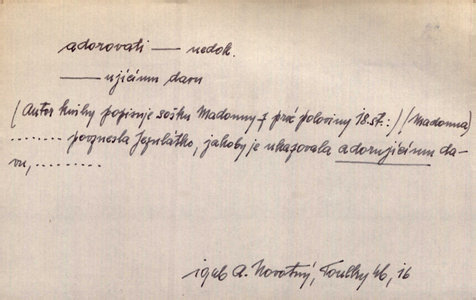 adorovati — nedok.
— ujícímu davu
(Autor knihy popisuje sošku Madonny z prvé poloviny 18. st.:) (Madonna)
........ povznesla Jezulátko, jakoby je ukazovala adorujícímu da-
vu, ..........
1946 A. Novotný, Toulky 46, 16